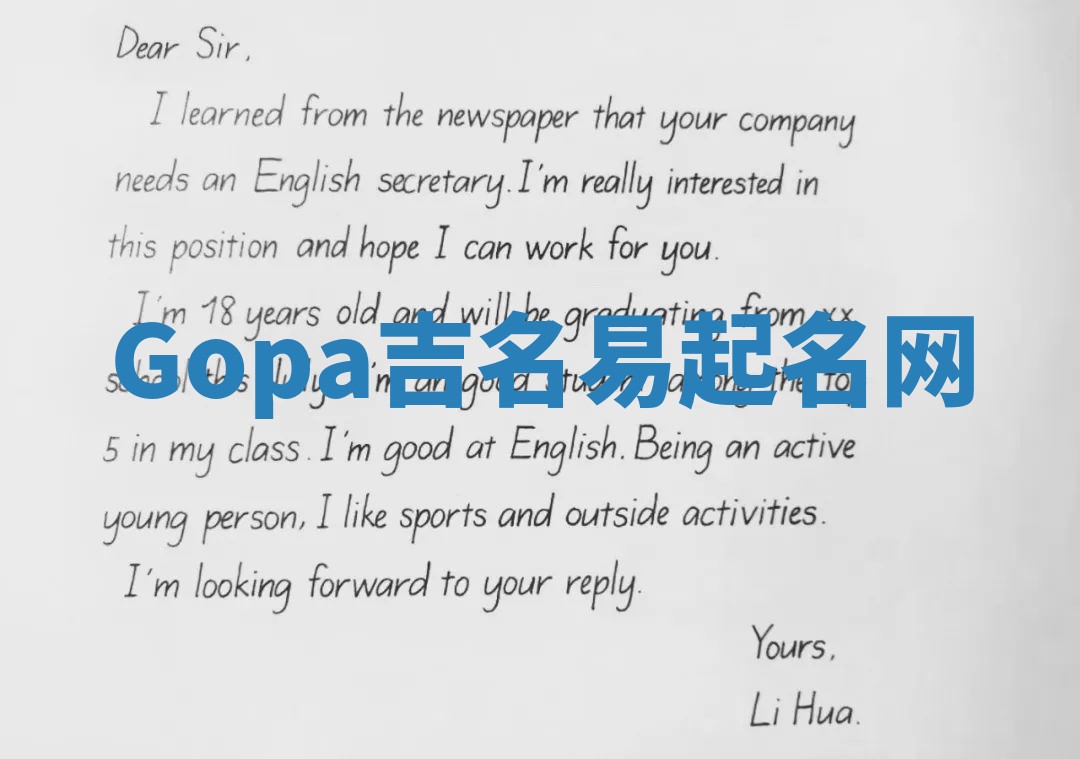 Dear Sir,
I learned from the newspaper that your company
needs an English secretary. I'm really interested in
this position and hope I can work for you.
I'm 18 years old and will be graduating from xx
Gopa吉名易起名网
school this July. I'm an good student among the top
5 in my class. I'm good at English. Being an active
young person, I like sports and outside activities.
I'm looking forward to your reply.
Yours,
Li Hua.